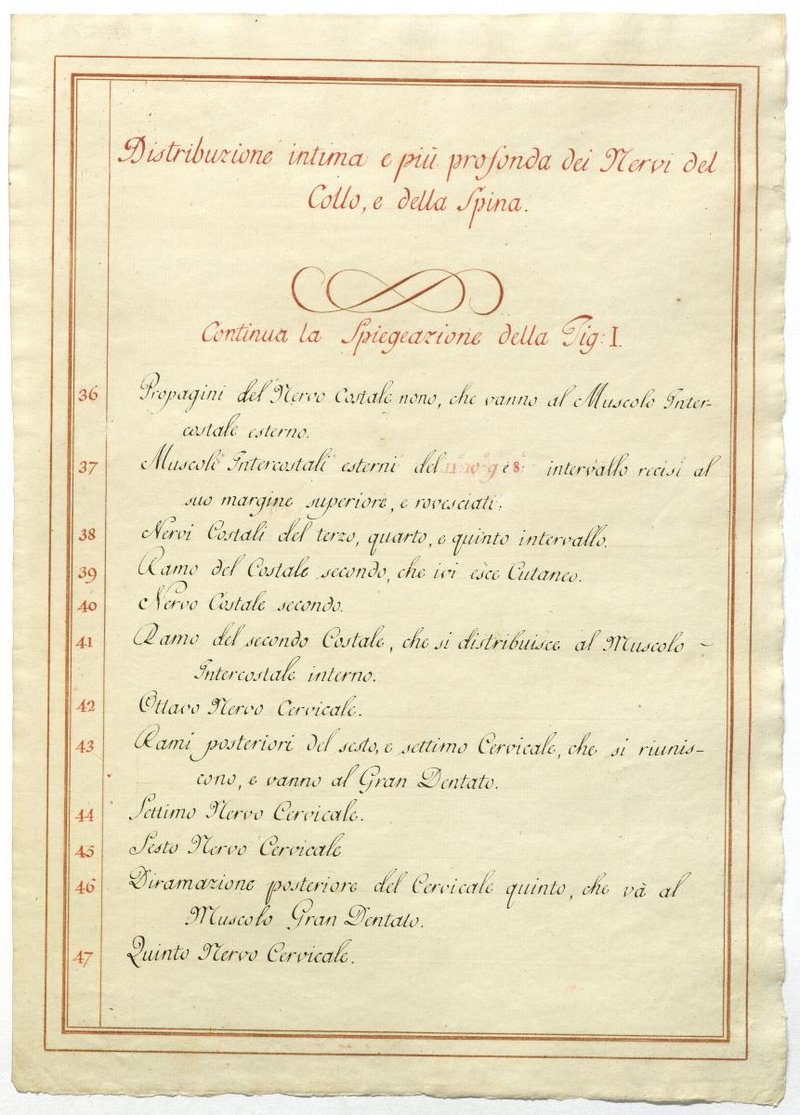 Distribuzione intima e più profonda dei Nervi del
Collo, e della Spina.
Continua la Spiegeazione della Fig: I.
36 Propagini del Nervo Costale nono, che vanno al Muscolo Inter-
costale esterno.
37 Muscoli Intercostali esterni del 11° 10° 9 e 8° intervallo recisi al
suo margine superiore, e rovesciati.
38 Nervi Costali del terzo, quarto, e quinto intervallo.
39 Ramo del Costale secondo, che ivi esce Cutaneo.
40 Nervo Costale secondo.
41 Ramo del secondo Costale, che si distribuisce al Muscolo -
Intercostale interno.
42 Ottavo Nervo Cervicale.
43 Rami posteriori del sesto, e settimo Cervicale, che si riunis-
cono, e vanno al Gran Dentato.
44 Settimo Nervo Cervicale.
45 Sesto Nervo Cervicale
46 Diramazione posteriore del Cervicale quinto, che và al
Muscolo Gran Dentato.
47 Quinto Nervo Cervicale.